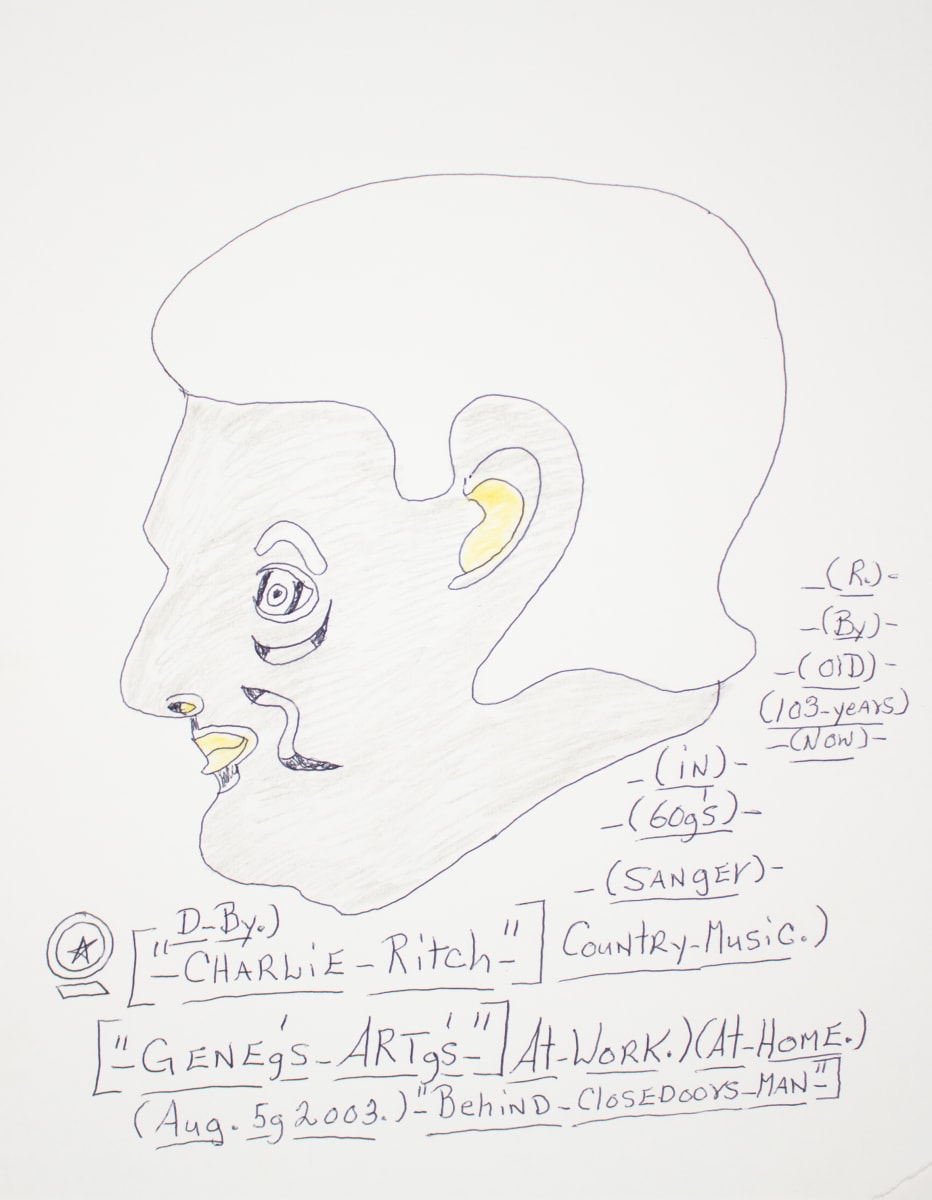 -(R.)-
-(By)-
-(OlD)-
(103-yeArs)
-(Now)-
-(iN)-
-(60g's)-
-(SANgEr)-
D-By.)
["-CHARLiE-Ritch-"] CouNtRy-Music.)
["-GENEg's-ARTg's-"] At-WoRK.)(At-HoME.)
(Aug. 5g 2003.)-"BehiND-ClosEDoors-MAN-"]